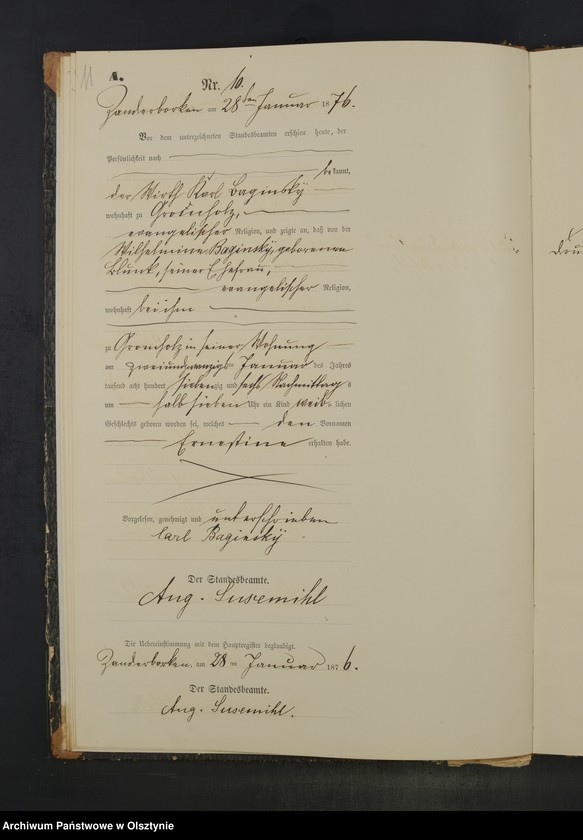 11
A.
Nr. 10.
Zanderborken am 28ten Januar 1876.
Vor dem unterzeichneten Standesbeamten erschien heute, der
Persönlichkeit nach
bekannt,
der Wirth Karl Baginsky
wohnhaft zu
evangelischer Religion, und zeigte an, daß von der
Wilhelmine Baginsky, geborenen
Blunk, seiner Ehefrau,
evangelischer Religion,
wohnhaft bei ihm
zu in seiner Wohnung
am zweiundzwanzigsten Januar des Jahres
tausend acht hundert siebenzig und sechs Nachmittags
um halb sieben Uhr ein Kind weiblichen
Geschlechts geboren worden sei, welches den Vornamen
Ernestine erhalten habe.
Vorgelesen, genehmigt und unterschrieben
Carl Baginsky
Der Standesbeamte.
Aug. Susemihl
Die Uebereinstimmung mit dem Hauptregister beglaubigt.
Zanderborken, am 28ten Januar 1876.
Der Standesbeamte.
Aug. Susemihl.
Archiwum Państwowe w Olsztynie